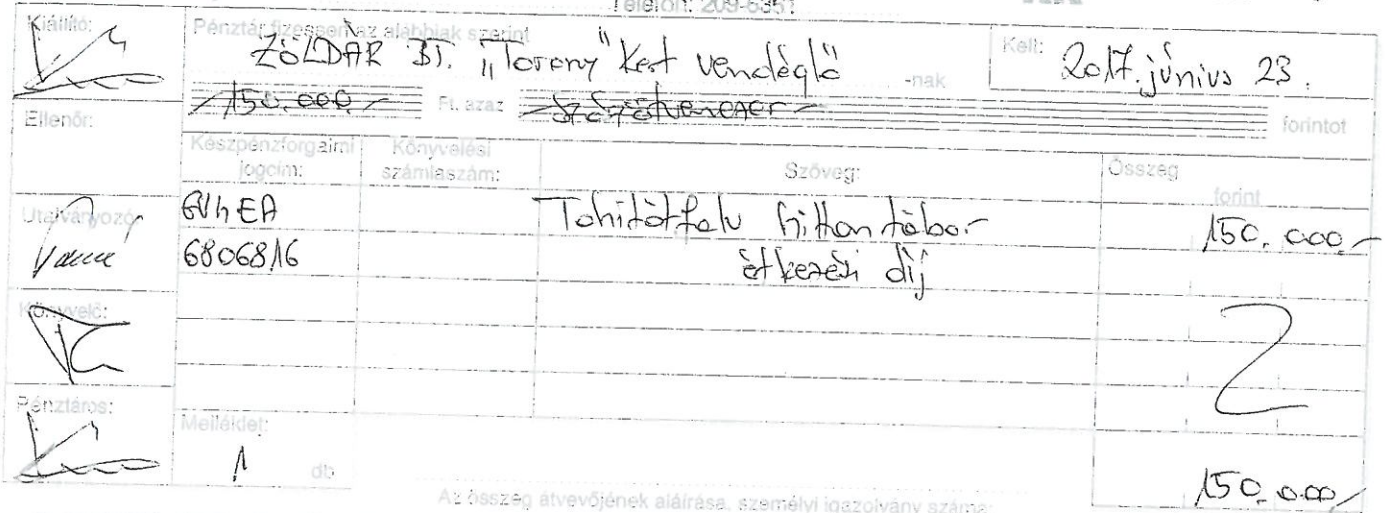 Telefon: 209-6351
Kiállító:
Pénztár fizessen az alábbiak szerint
ZÖLDÁR BT. "Torony" Kert vendéglő -nak
Kelt: 2017. június 23.
150.000,- Ft. azaz Százötvenezer forintot
Ellenőr:
Készpénzforgalmi jogcím:
Könyvelési számlaszám:
Szöveg:
Összeg
forint
Utalványozó:
GVhEA
Tahitótfalu hittantábor
150.000,-
6806816
étkezési díj
Könyvelő:
Pénztáros:
Melléklet:
1 db
150.000,-
Az összeg átvevőjének aláírása, személyi igazolvány száma: